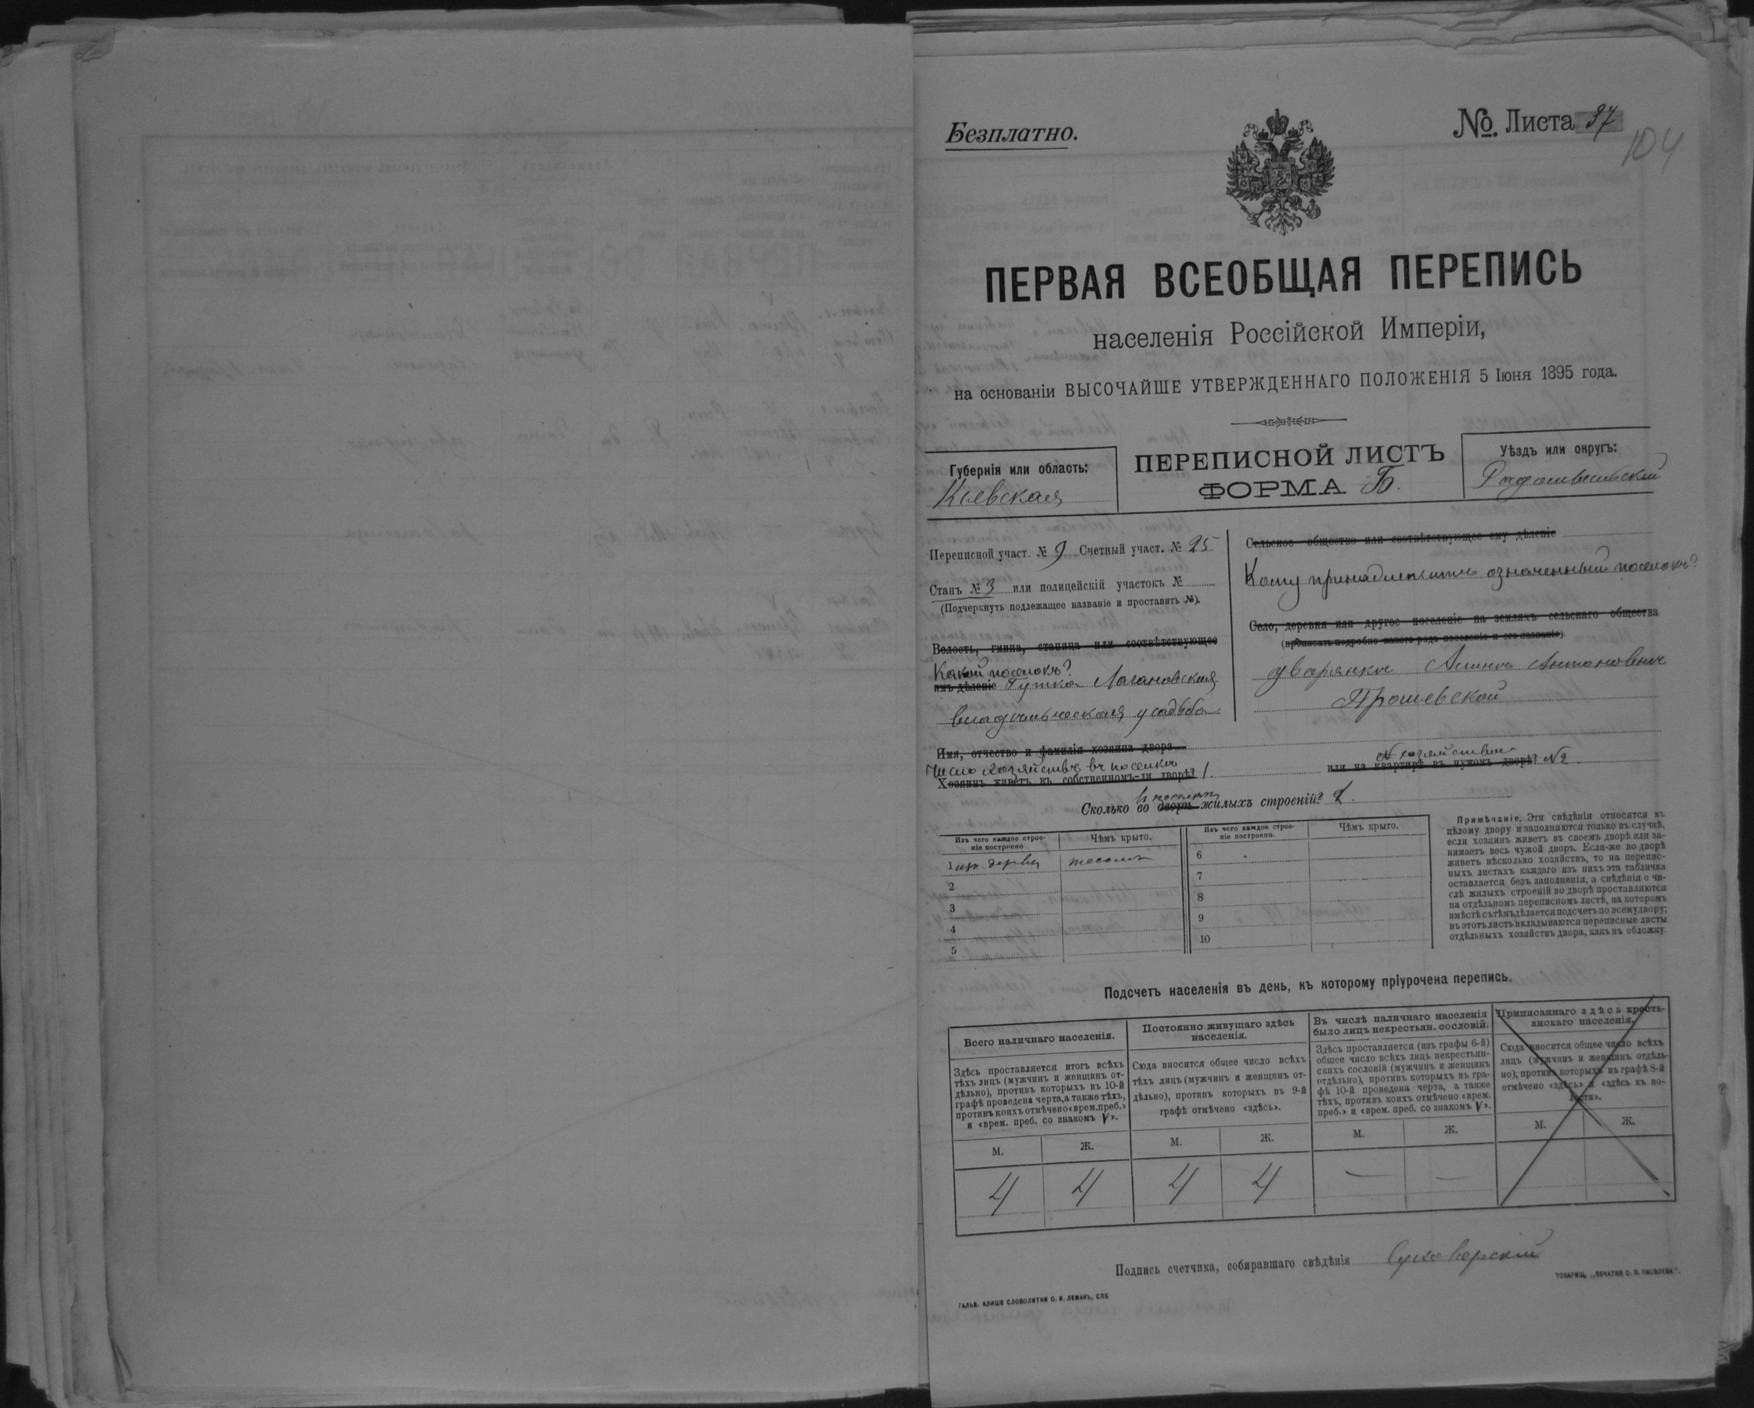 Безплатно.
№ Листа 37
104
ПЕРВАЯ ВСЕОБЩАЯ ПЕРЕПИСЬ
населенія Россійской Имперіи,
на основаніи ВЫСОЧАЙШЕ УТВЕРЖДЕННАГО ПОЛОЖЕНІЯ 5 Іюня 1895 года.
Губернія или область:
Кіевская
ПЕРЕПИСНОЙ ЛИСТЪ
ФОРМА Б.
Уѣздъ или округъ:
Радомысльскій
Переписной участ. № 9 Счетный участ. № 25
Станъ № 3 или полицейскій участокъ №
(Подчеркнуть подлежащее названіе и проставить №).
Волость, гмина, станица или соотвѣтствующее
Какой поселокъ?
имъ дѣленіе Гутка Логановская
владѣльческая усадьба
Сельское общество или соотвѣтствующее ему дѣленіе
Кому принадлежитъ означенный поселокъ?
Село, деревня или другое поселеніе на земляхъ сельскаго общества
(прописать подробно какого рода поселеніе и его названіе)
дворянка Антоновна
Имя, отчество и фамилія хозяина двора
Число хозяйствъ въ поселкѣ
Хозяинъ живетъ въ собственномъ-ли дворѣ? 1.
№ хозяйства
или на квартирѣ въ чужомъ дворѣ? №2.
въ поселкѣ
Сколько во дворѣ жилыхъ строеній? 1.
Изъ чего каждое строе-
ніе построено
Чѣмъ крыто.
1 изъ дерева тесомъ
2
3
4
5
Изъ чего каждое строе-
ніе построено.
Чѣмъ крыто.
6
7
8
9
10
Примѣчаніе. Эти свѣдѣнія относятся къ
цѣлому двору и заполняются только въ случаѣ,
если хозяинъ живетъ въ своемъ дворѣ или за-
нимаетъ весь чужой дворъ. Если-же во дворѣ
живетъ нѣсколько хозяйствъ, то на перепис-
ныхъ листахъ каждаго изъ нихъ эта табличка
оставляется безъ заполненія, а свѣдѣнія о чи-
слѣ жилыхъ строеній во дворѣ проставляются
на отдѣльномъ переписномъ листѣ, на которомъ
вмѣстѣ съ тѣмъ дѣлается подсчетъ по всему двору;
въ этотъ листъ вкладываются переписные листы
отдѣльныхъ хозяйствъ двора, какъ въ обложку.
Подсчетъ населенія въ день, къ которому пріурочена перепись.
Всего наличнаго населенія.
Здѣсь проставляется итогъ всѣхъ
тѣхъ лицъ (мужчинъ и женщинъ от-
дѣльно), противъ которыхъ въ 10-й
графѣ проведена черта, а также тѣхъ,
противъ коихъ отмѣчено «врем. преб.»
и «врем. преб. со знакомъ V».
М. Ж.
4 4
Постоянно живущаго здѣсь
населенія.
Сюда вносится общее число всѣхъ
тѣхъ лицъ (мужчинъ и женщинъ от-
дѣльно), противъ которыхъ въ 9-й
графѣ отмѣчено «здѣсь».
М. Ж.
4 4
Въ числѣ наличнаго населенія
было лицъ некрестьян. сословій.
Здѣсь проставляется (изъ графы 6-й)
общее число всѣхъ лицъ некрестьян-
скихъ сословій (мужчинъ и женщинъ
отдѣльно), противъ которыхъ въ гра-
фѣ 10-й проведена черта, а также
тѣхъ, противъ коихъ отмѣчено «врем.
преб.» и «врем. преб. со знакомъ V».
М. Ж.
— —
Приписаннаго здѣсь кресть-
янскаго населенія.
Сюда вносится общее число всѣхъ
лицъ (мужчинъ и женщинъ отдѣль-
но), противъ которыхъ въ графѣ 8-й
отмѣчено «здѣсь» и «здѣсь въ во-
лости».
М. Ж.
Подпись счетчика, собиравшаго свѣдѣнія
ГАЛЬВ. КЛИШЕ СЛОВОЛИТНИ О. И. ЛЕМАНЪ, СПБ
ТОВАРИЩ. „ПЕЧАТНЯ С. П. ЯКОВЛЕВА".